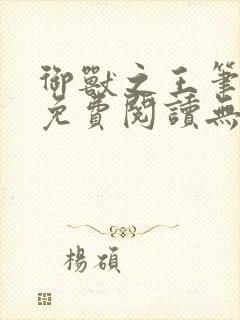 御獸之王筆
免費閱讀無
楊碩